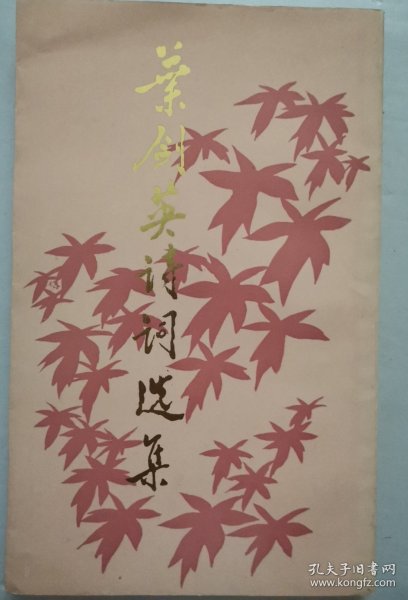 葉剑英詩詞选集
孔夫子旧书网
www.kongfz.com